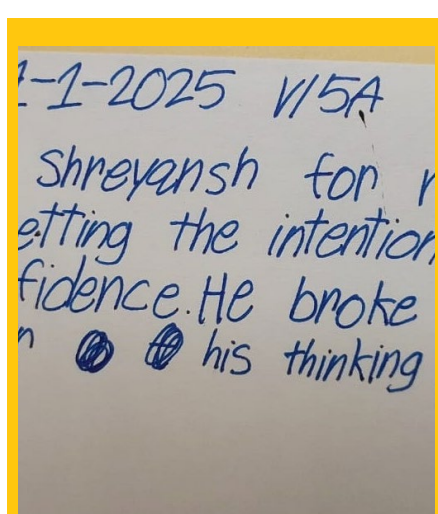 -1-2025 V/5A
Shreyansh for
etting the intention
fidence. He broke
his thinking